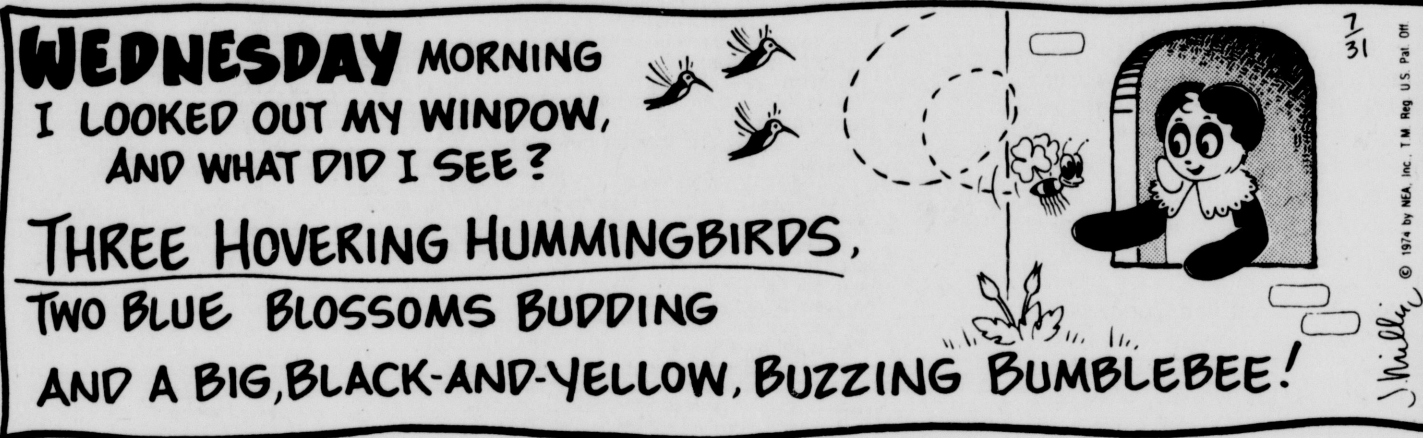 WEDNESDAY MORNING
I LOOKED OUT MY WINDOW,
AND WHAT DID I SEE?
THREE HOVERING HUMMINGBIRDS,
TWO BLUE BLOSSOMS BUDDING
AND A BIG, BLACK-AND-YELLOW, BUZZING BUMBLEBEE!
7
31
© 1974 by NEA, Inc., T.M. Reg. U.S. Pat. Off.
J. Millar